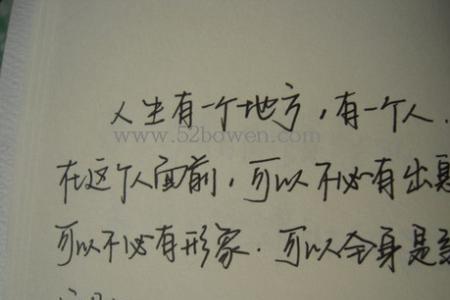 人生有一个地方，有一个人.
www.52bowen.com
在这个人面前，可以不必有出息
可以不必有形象.可以全身是